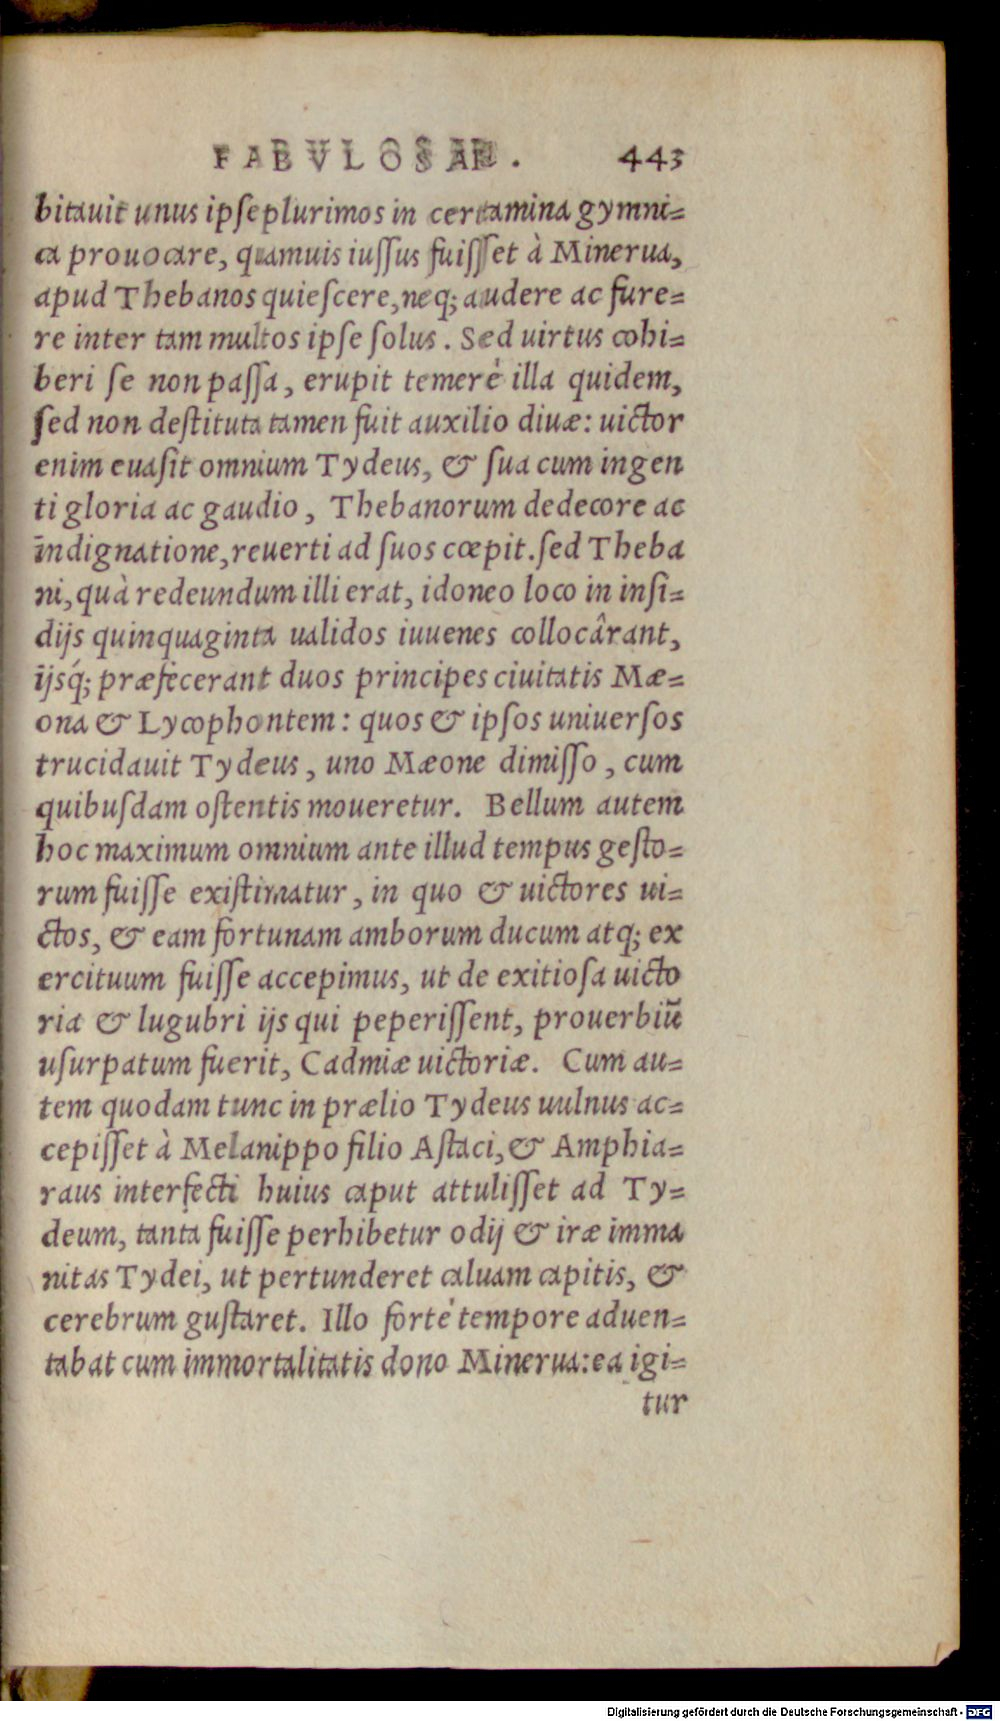 FABVLOSAE. 443
bitauit unus ipse plurimos in certamina gymni=
ca prouocare, quamuis iussus fuisset à Minerua,
apud Thebanos quiescere, neq; audere ac fure=
re inter tam multos ipse solus. Sed uirtus cohi=
beri se non passa, erupit temerè illa quidem,
sed non destituta tamen fuit auxilio diuæ: uictor
enim euasit omnium Tydeus, & sua cum ingen
ti gloria ac gaudio, Thebanorum dedecore ac
indignatione, reuerti ad suos cœpit. sed Theba
ni, quà redeundum illi erat, idoneo loco in insi=
dijs quinquaginta ualidos iuuenes collocârant,
ijsq́; præfecerant duos principes ciuitatis Mæ=
ona & Lycophontem: quos & ipsos uniuersos
trucidauit Tydeus, uno Mæone dimisso, cum
quibusdam ostentis moueretur. Bellum autem
hoc maximum omnium ante illud tempus gesto=
rum fuisse existimatur, in quo & uictores ui=
ctos, & eam fortunam amborum ducum atq; ex
ercituum fuisse accepimus, ut de exitiosa uicto
ria & lugubri ijs qui peperissent, prouerbiū
usurpatum fuerit, Cadmiæ uictoriæ. Cum au=
tem quodam tunc in prælio Tydeus uulnus ac=
cepisset à Melanippo filio Astaci, & Amphia=
raus interfecti huius caput attulisset ad Ty=
deum, tanta fuisse perhibetur odij & iræ imma
nitas Tydei, ut pertunderet caluam capitis, &
cerebrum gustaret. Illo fortè tempore aduen=
tabat cum immortalitatis dono Minerua: ea igi=
tur
Digitalisierung gefördert durch die Deutsche Forschungsgemeinschaft - DFG